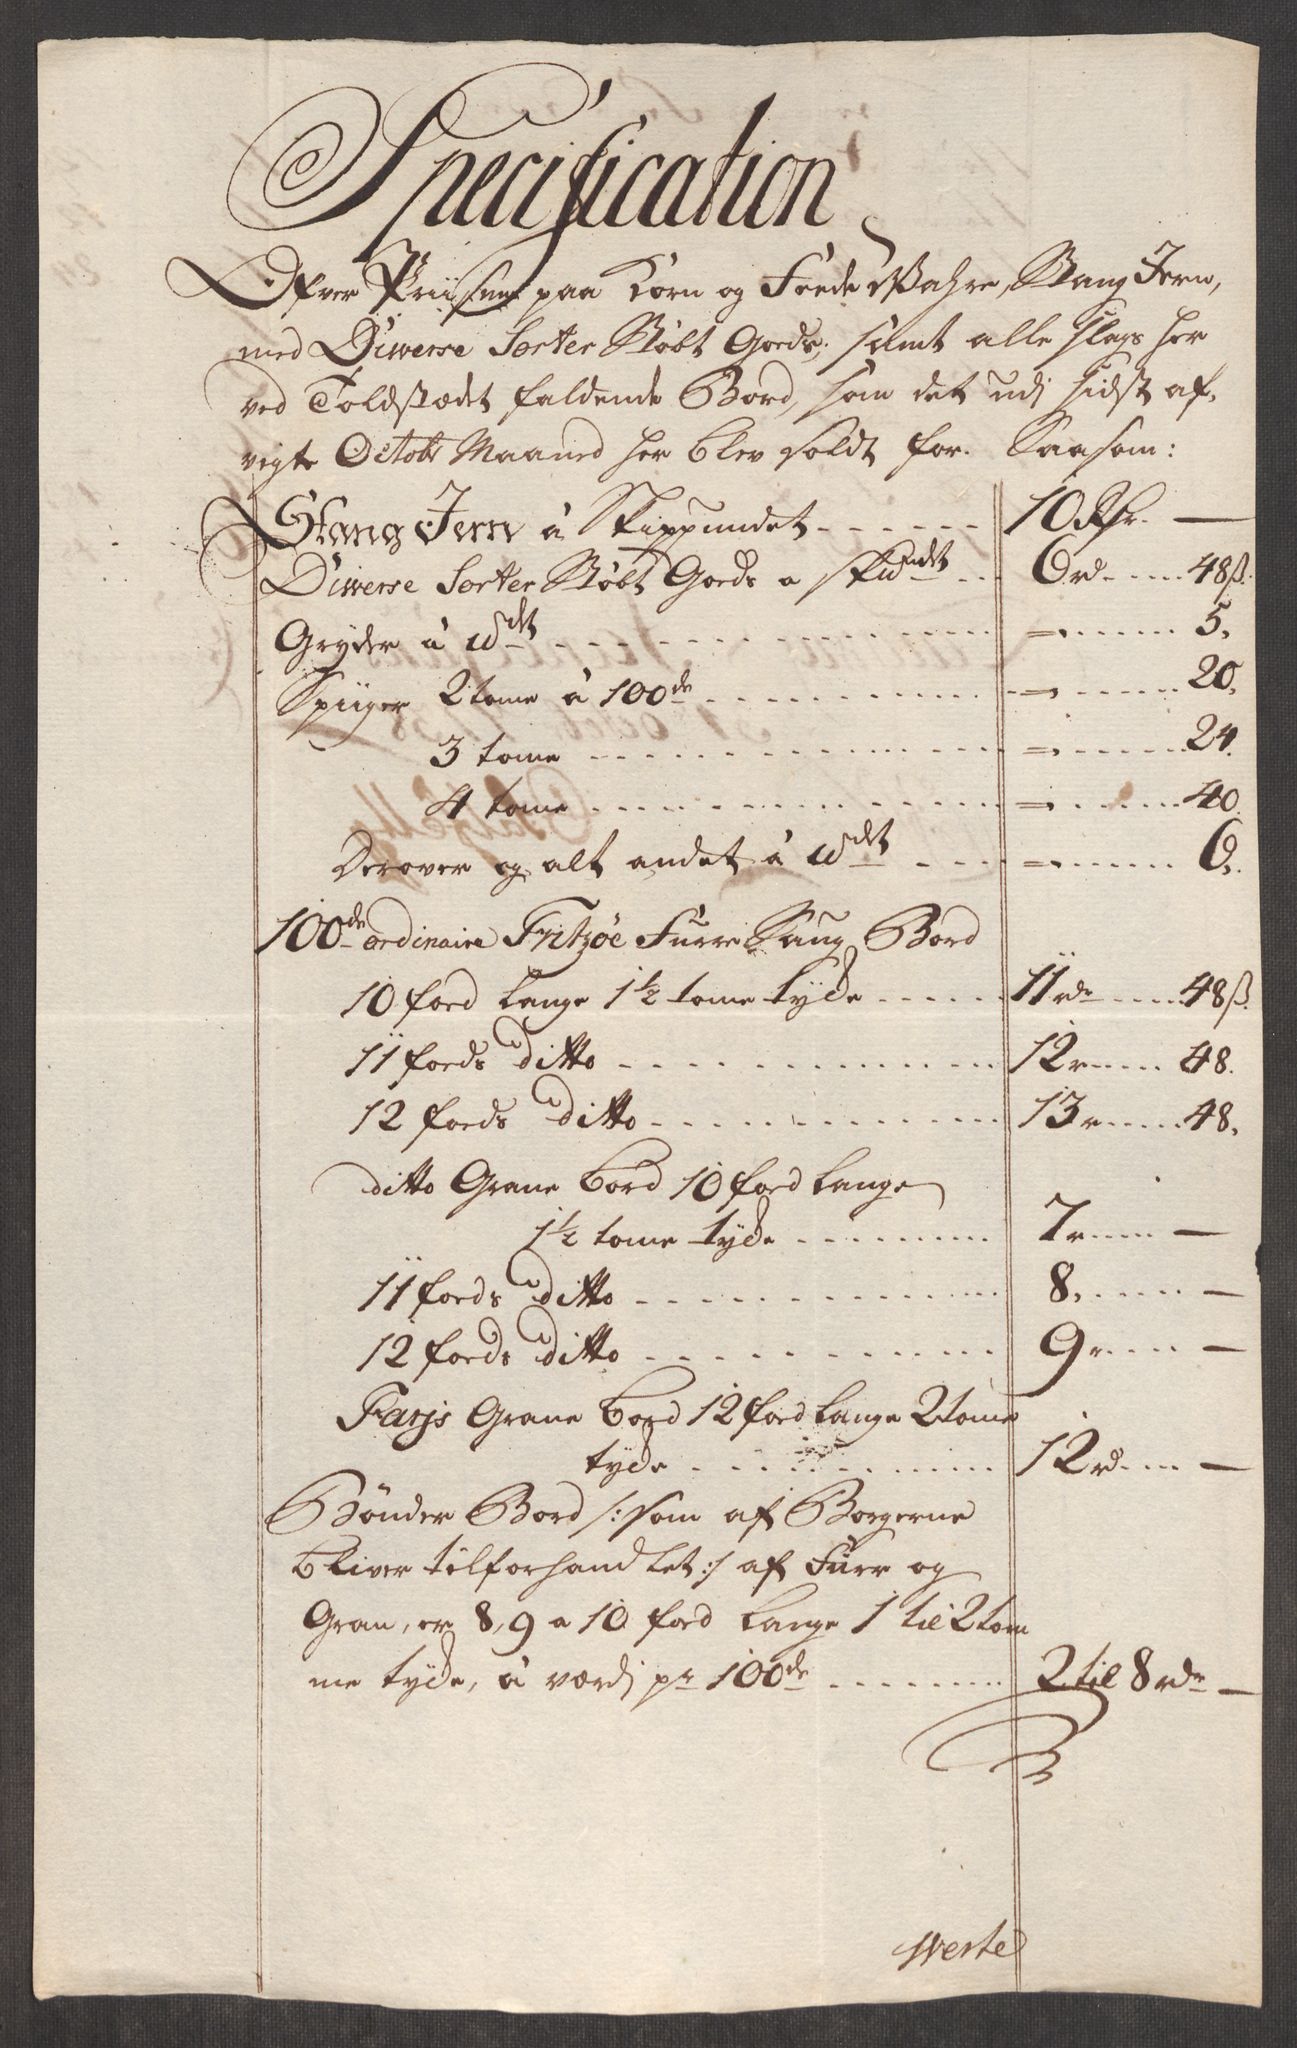 Specification
Ofver Priisene paa Korn og Feede Wahre, Stang Jern,
med Diverse Sorter Støbt Goeds, samt alle slags her
ved Toldstædet faldende Bord, som det udj sidst af„
vigte Octobr Maaned her blev soldt for. Saasom:
Stang Jern â Skippundet ------ 10 Rdr. —
Diverse Sorter Støbt Goeds a Skudet -- 6 rd ---- 48 ß.
Gryder â ℔det ------ = ------ 5.
Spiiger 2 tome â 100de ------ = ------ 20.
3 tome ------ = ------ 24.
4 tome ------ = ------ 40.
Derover og alt andet â ℔det ---- = ------ 6.
100de ordinaire Fritzøe Furre Saug Bord
10 foed lange 1½ tome tyde ------ 11 rdr ---- 48 ß.
11 foeds ditto ------ 12 r ---- 48.
12 foeds ditto ------ 13 r ---- 48.
ditto Grane bord 10 foed lange
1½ tome tyde ------ 7 r ---- —
11 foeds ditto ------ 8. ---- —
12 foeds ditto ------ 9 r ---- —
Farjs Grane bord 12 foed lange 2 tome
tyde ------ 12 rd ---- —
Bønder Bord /: som af Borgerne
bliver tilforhandlet :/ af Furr og
Gran, er 8, 9 a 10 foed lange 1 til 2 tom
me tyde, â værdj pr 100de ------ 2 til 8 rdr —
Verte